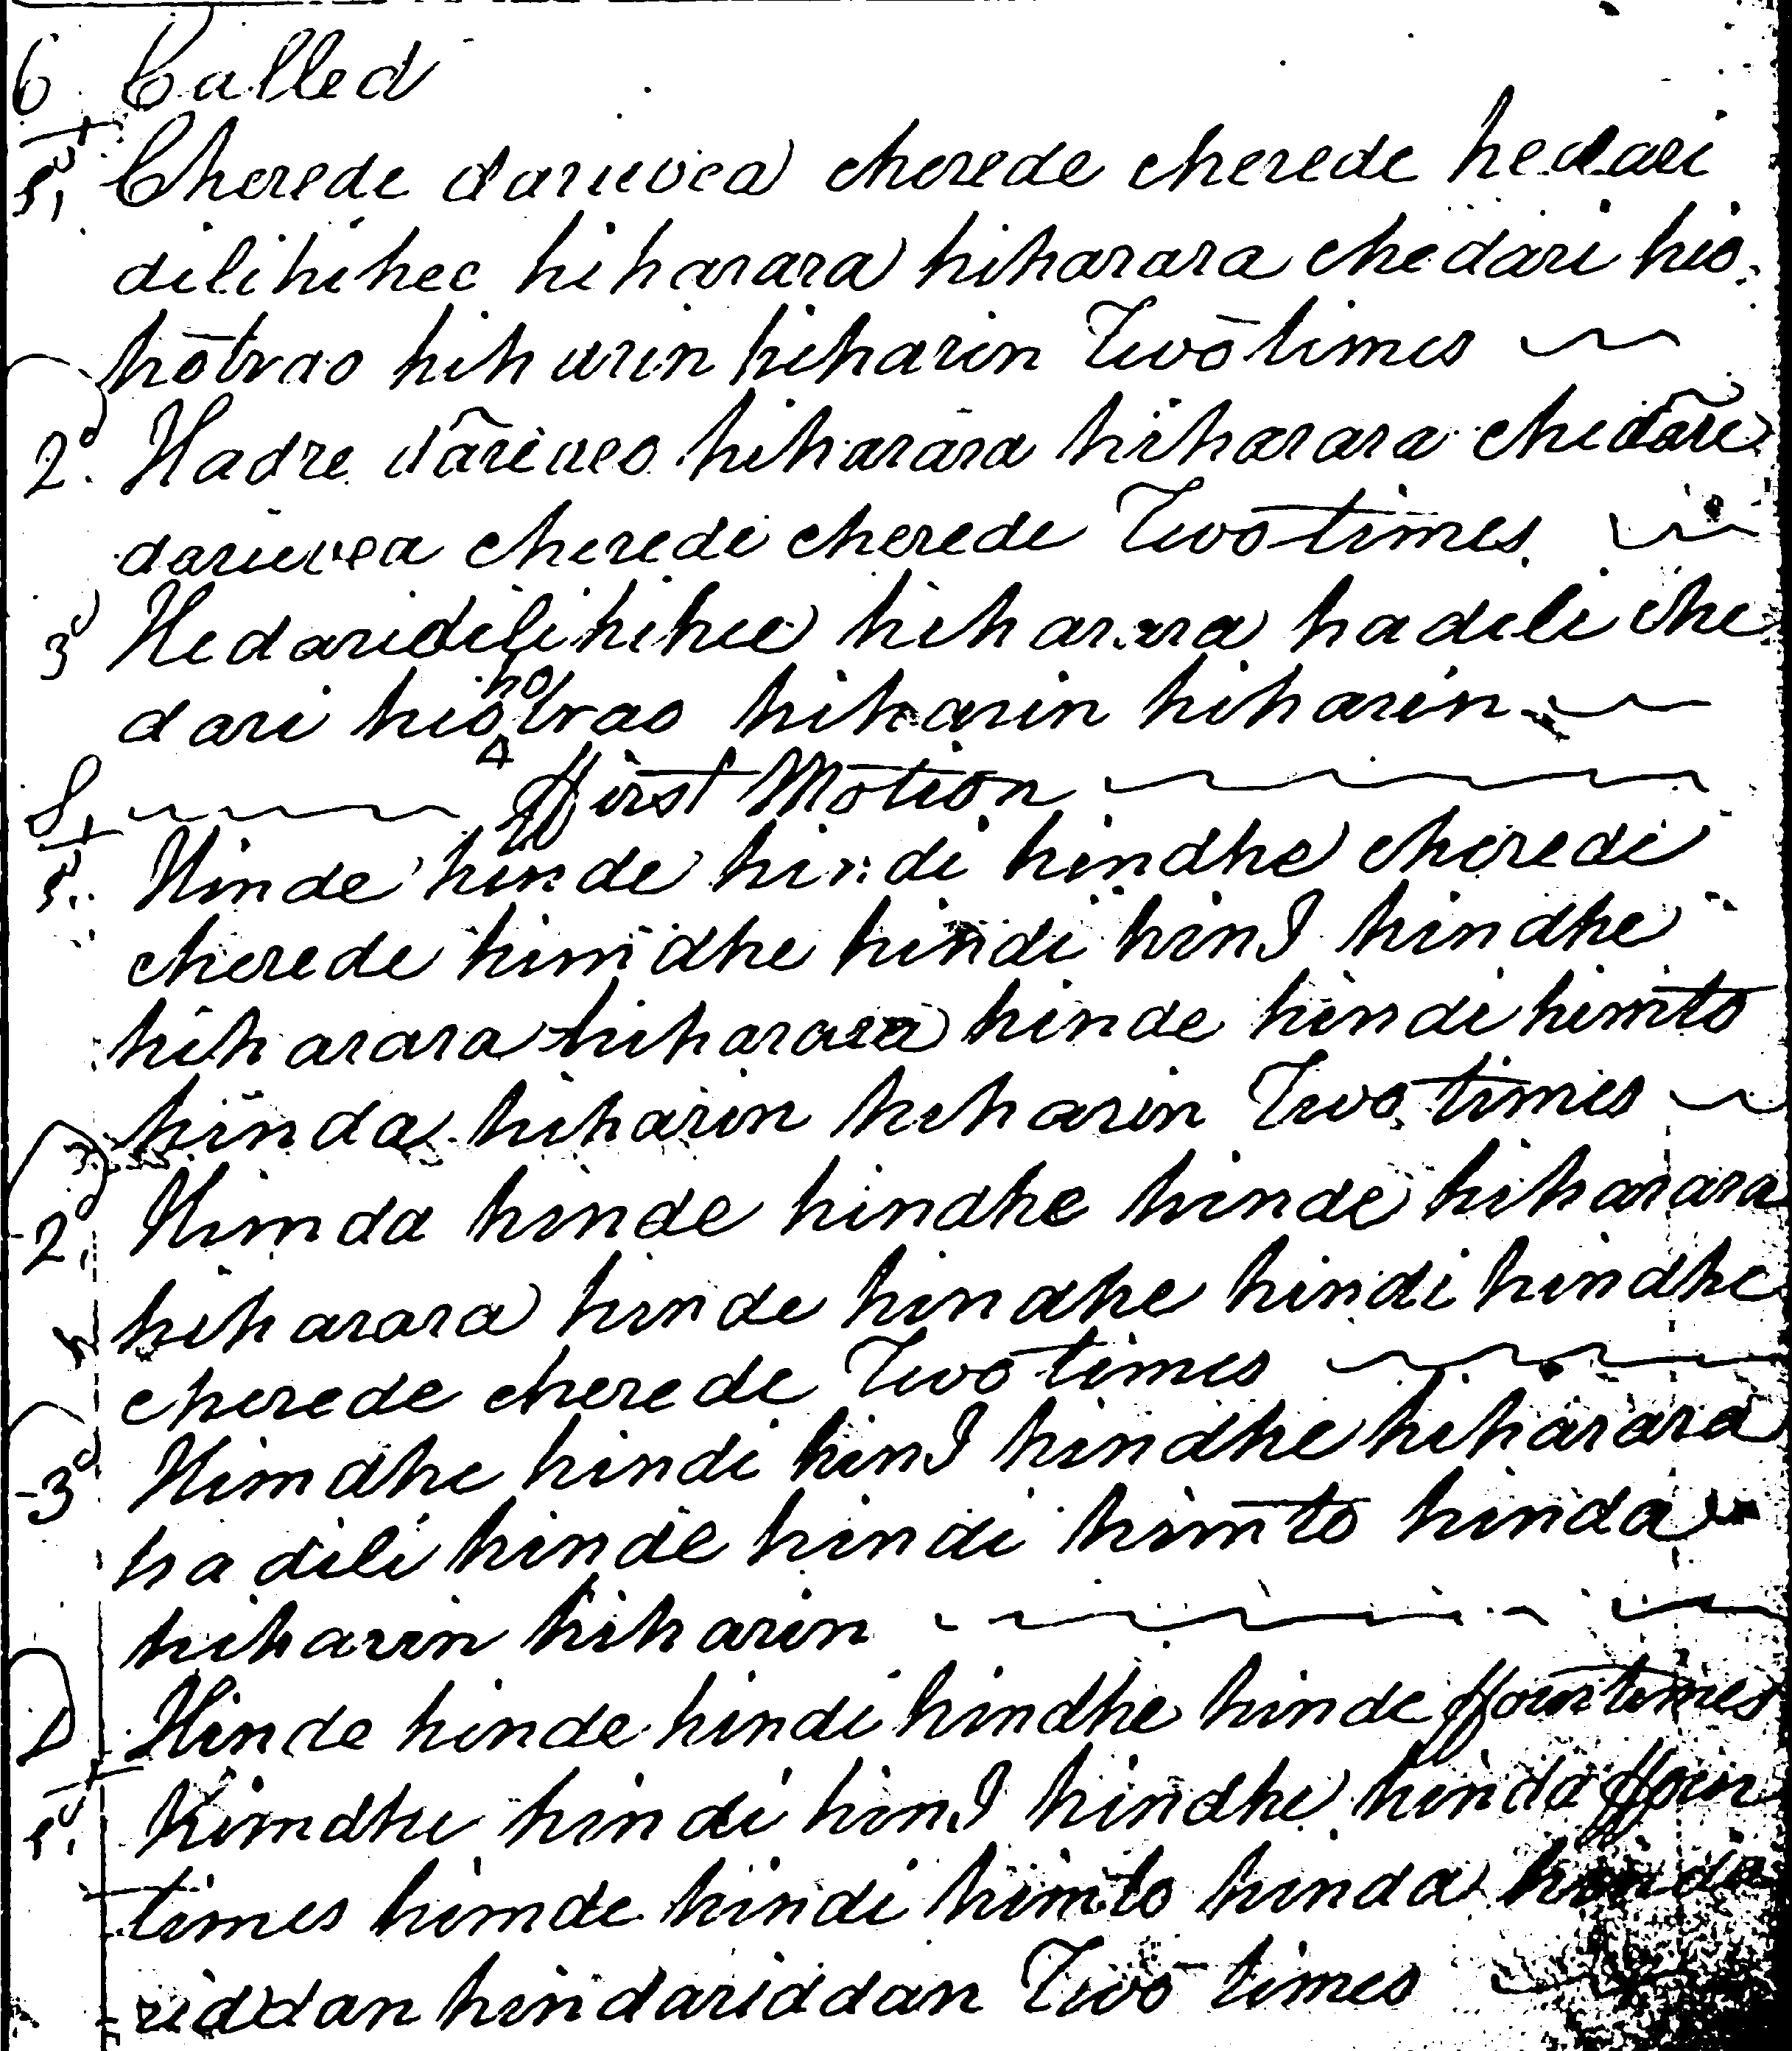 6 Called
1, Cherede darievea cherede cherede hedari
dilihihee hiharara hiharara chedari hio
hotrao hiharin hiharin Two times
2d. Hadre dârievo hiharara hiharara chedare
darievea cherede cherede Two times
3d Hedaridilihihee hiharara hadili che
dari hio ho trao hiharin hiharin
S, ffirst Motion
1. Hinde hinde hindi hindhe cherede
cherede himdhe hindi hinI hindhe
hiharara hiharara hinde hindi himto
hinda hiharin hiharin Two times
2d, Himda hinde hindhe hinde hiharara
hiharara hinde hindhe hindi hindhe
cherede cherede Two times
3d Himdhe hindi hinI hindhe hiharara
hadili hinde hindi himto hinda
hiharin hiharin
D Hinde hinde hindi hindhe hinde ffour times
1. Himdhe hindi hinI hindhe hinda ffour
times himde hindi himto hinda hinda
riddan hindariddan Two times